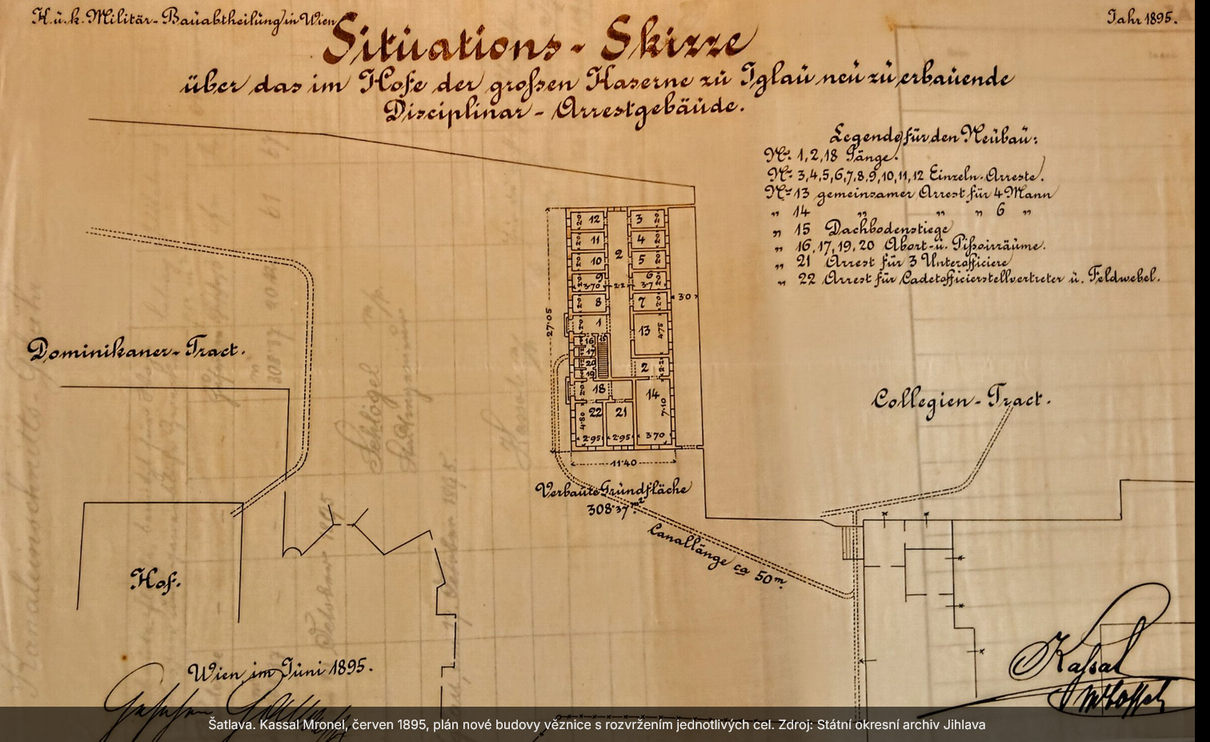 K. u. k. Militär-Bauabtheilung in Wien
Jahr 1895.
Situations-Skizze
über das im Hofe der großen Kaserne zu Iglau neu zu erbauende
Disciplinar-Arrestgebäude.
Legende für den Neubau:
No. 1, 2, 18 Gänge.
No. 3, 4, 5, 6, 7, 8, 9, 10, 11, 12 Einzeln-Arreste.
No. 13 gemeinsamer Arrest für 4 Mann
„ 14 „ „ „ 6 „
„ 15 Dachbodenstiege
„ 16, 17, 19, 20 Abort- u. Pißoirräume.
„ 21 Arrest für 3 Unterofficiere
„ 22 Arrest für Cadetofficierstellvertreter u. Feldwebel.
12 3
11 4
2
10 5
9 6
3·70
8 7
1
13
30
27·05
16
17
20
19
2
18
14
22 21
4·80
7·10
2·95 2·95 3·70
11·40
Dominikaner-Tract.
Collegien-Tract.
Verbaute Grundfläche
308·37 m²
Canallänge ca 50 m.
Hof.
Wien im Juni 1895.
Kassal
Šatlava. Kassal Mronel, červen 1895, plán nové budovy věznice s rozvržením jednotlivých cel. Zdroj: Státní okresní archiv Jihlava